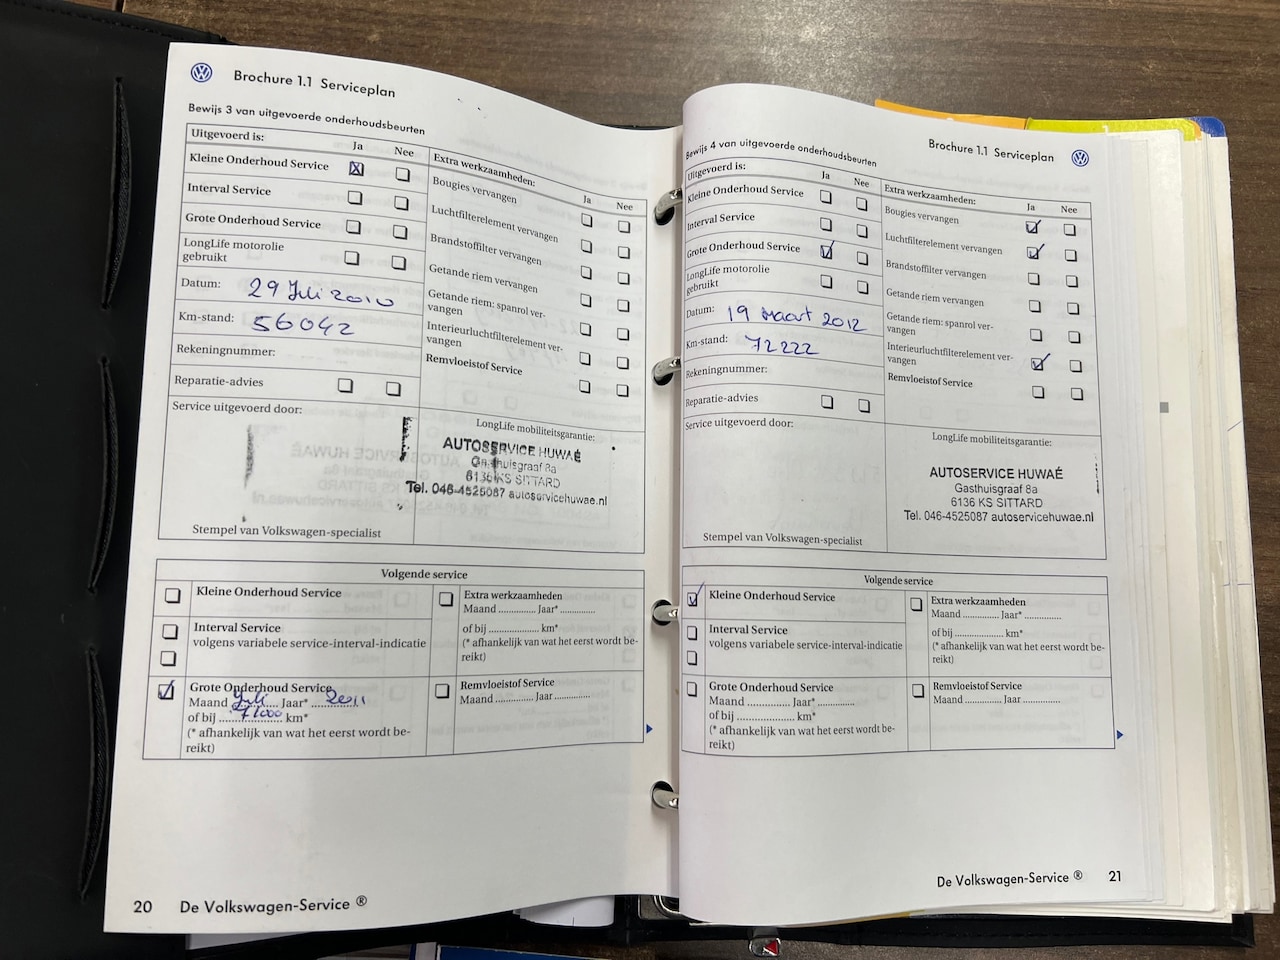 Brochure 1.1 Serviceplan
Bewijs 3 van uitgevoerde onderhoudsbeurten
Uitgevoerd is:
Ja
Nee
Kleine Onderhoud Service
Interval Service
Grote Onderhoud Service
LongLife motorolie
gebruikt
Datum: 29 Juli 2010
Km-stand: 56042
Rekeningnummer:
Reparatie-advies
Extra werkzaamheden:
Ja
Nee
Bougies vervangen
Luchtfilterelement vervangen
Brandstoffilter vervangen
Getande riem vervangen
Getande riem: spanrol ver-
vangen
Interieurluchtfilterelement ver-
vangen
Remvloeistof Service
Service uitgevoerd door:
Stempel van Volkswagen-specialist
LongLife mobiliteitsgarantie:
AUTOSERVICE HUWAÉ
Gasthuisgraaf 8a
6136 KS SITTARD
Tel. 046-4525087 autoservicehuwae.nl
Volgende service
Kleine Onderhoud Service
Interval Service
volgens variabele service-interval-indicatie
Grote Onderhoud Service
Maand Juli Jaar* 2011
of bij 71000 km*
(* afhankelijk van wat het eerst wordt be-
reikt)
Extra werkzaamheden
Maand .............. Jaar* ..............
of bij .................... km*
(* afhankelijk van wat het eerst wordt be-
reikt)
Remvloeistof Service
Maand .............. Jaar ..............
20 De Volkswagen-Service ®
Brochure 1.1 Serviceplan
Bewijs 4 van uitgevoerde onderhoudsbeurten
Uitgevoerd is:
Ja
Nee
Kleine Onderhoud Service
Interval Service
Grote Onderhoud Service
LongLife motorolie
gebruikt
Datum: 19 Maart 2012
Km-stand: 72222
Rekeningnummer:
Reparatie-advies
Extra werkzaamheden:
Ja
Nee
Bougies vervangen
Luchtfilterelement vervangen
Brandstoffilter vervangen
Getande riem vervangen
Getande riem: spanrol ver-
vangen
Interieurluchtfilterelement ver-
vangen
Remvloeistof Service
Service uitgevoerd door:
Stempel van Volkswagen-specialist
LongLife mobiliteitsgarantie:
AUTOSERVICE HUWAÉ
Gasthuisgraaf 8a
6136 KS SITTARD
Tel. 046-4525087 autoservicehuwae.nl
Volgende service
Kleine Onderhoud Service
Interval Service
volgens variabele service-interval-indicatie
Grote Onderhoud Service
Maand .............. Jaar* ..............
of bij .................... km*
(* afhankelijk van wat het eerst wordt be-
reikt)
Extra werkzaamheden
Maand .............. Jaar* ..............
of bij .................... km*
(* afhankelijk van wat het eerst wordt be-
reikt)
Remvloeistof Service
Maand .............. Jaar ..............
De Volkswagen-Service ® 21